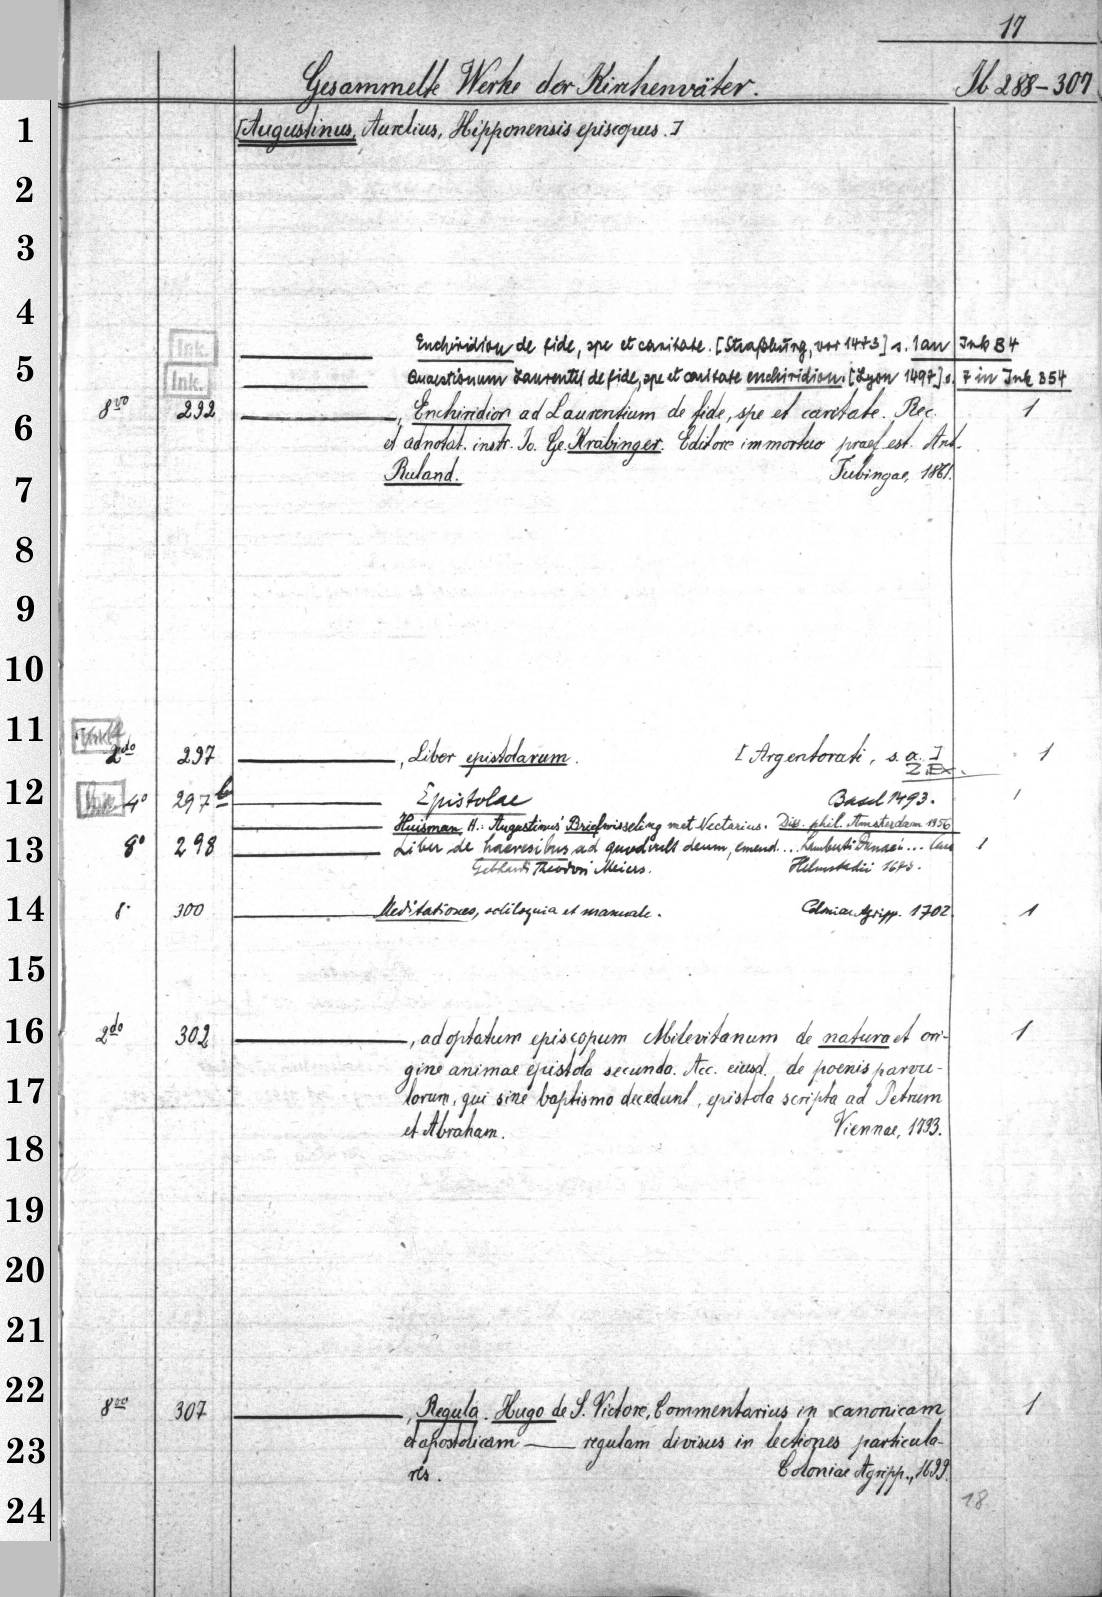 17
Gesammelte Werke der Kirchenväter. Ib 288-307
1 [Augustinus, Aurelius, Hipponensis episcopus.]
2
3
4
Ink. Enchiridion de fide, spe et caritate. [Straßburg, vor 1473] s. 1 an Ink B4
5 Ink. Quaestionum Laurentii de fide, spe et caritate enchiridion. [Lyon 1497] s. 7 in Ink 354
6 8vo 292 , Enchiridion ad Laurentium de fide, spe et caritate. Rec. 1
et adnotat. instr. Jo. Ge. Krabinger. Editore immortuo praef. est. Ant.
7 Ruland. Tubingae, 1861.
8
9
10
11 2do 297 , Liber epistolarum. [Argentorati, s. a.] 1
2 Ex.
12 4o 297b Epistolae Basel 1493. 1
Huisman, H.: Augustinus' Briefwisseling met Nectarius. Diss. phil. Amsterdam 1956
13 8o 298 Liber de haeresibus ad quodvult deum, emend... Lamberti Danaei... Cura 1
Gebhardi Theodori Meiers. Helmstadii 1673.
14 8. 300 Meditationes, soliloquia et manuale. Coloniae Agripp. 1702. 1
15
16 2do 302 , ad optatum episcopum Milevitanum de natura et ori- 1
gine animae epistola secunda. Acc. eiusd. de poenis parvu-
17 lorum, qui sine baptismo decedunt, epistola scripta ad Petrum
et Abraham. Viennae, 1733.
18
19
20
21
22 8vo 307 , Regula. Hugo de S. Victore, Commentarius in canonicam 1
23 et apostolicam — regulam divisus in lectiones particula-
res. Coloniae Agripp., 1699.
24 18